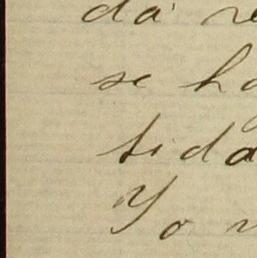 da re
se ha
tida
Yo